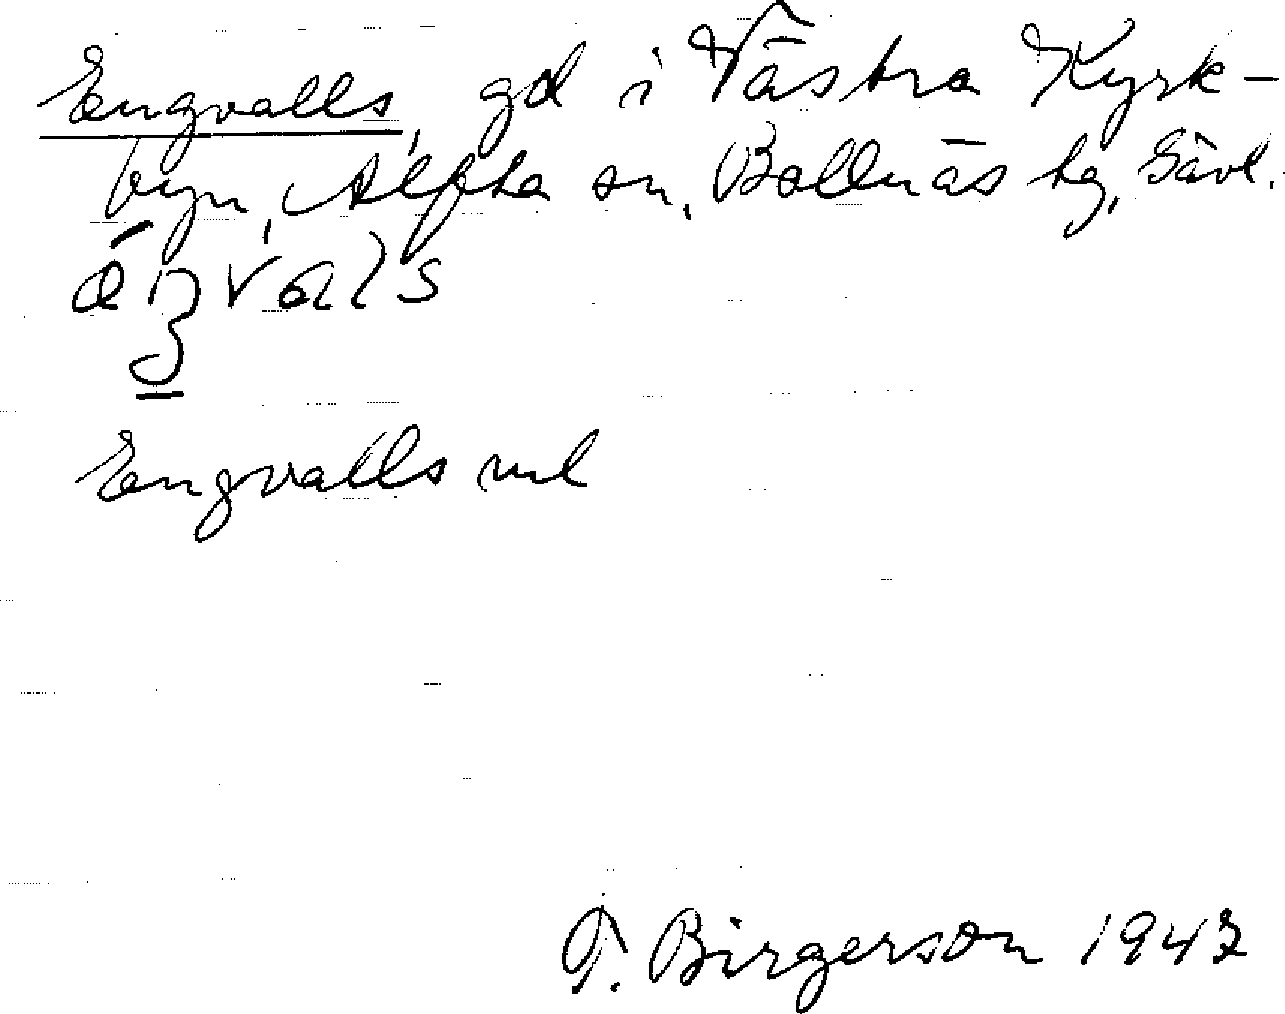 Engvalls, gd i Västra Kyrk-
byn, Alfta sn, Bollnäs tg, Gävl.
Engvalls ml
T. Birgerson 1947